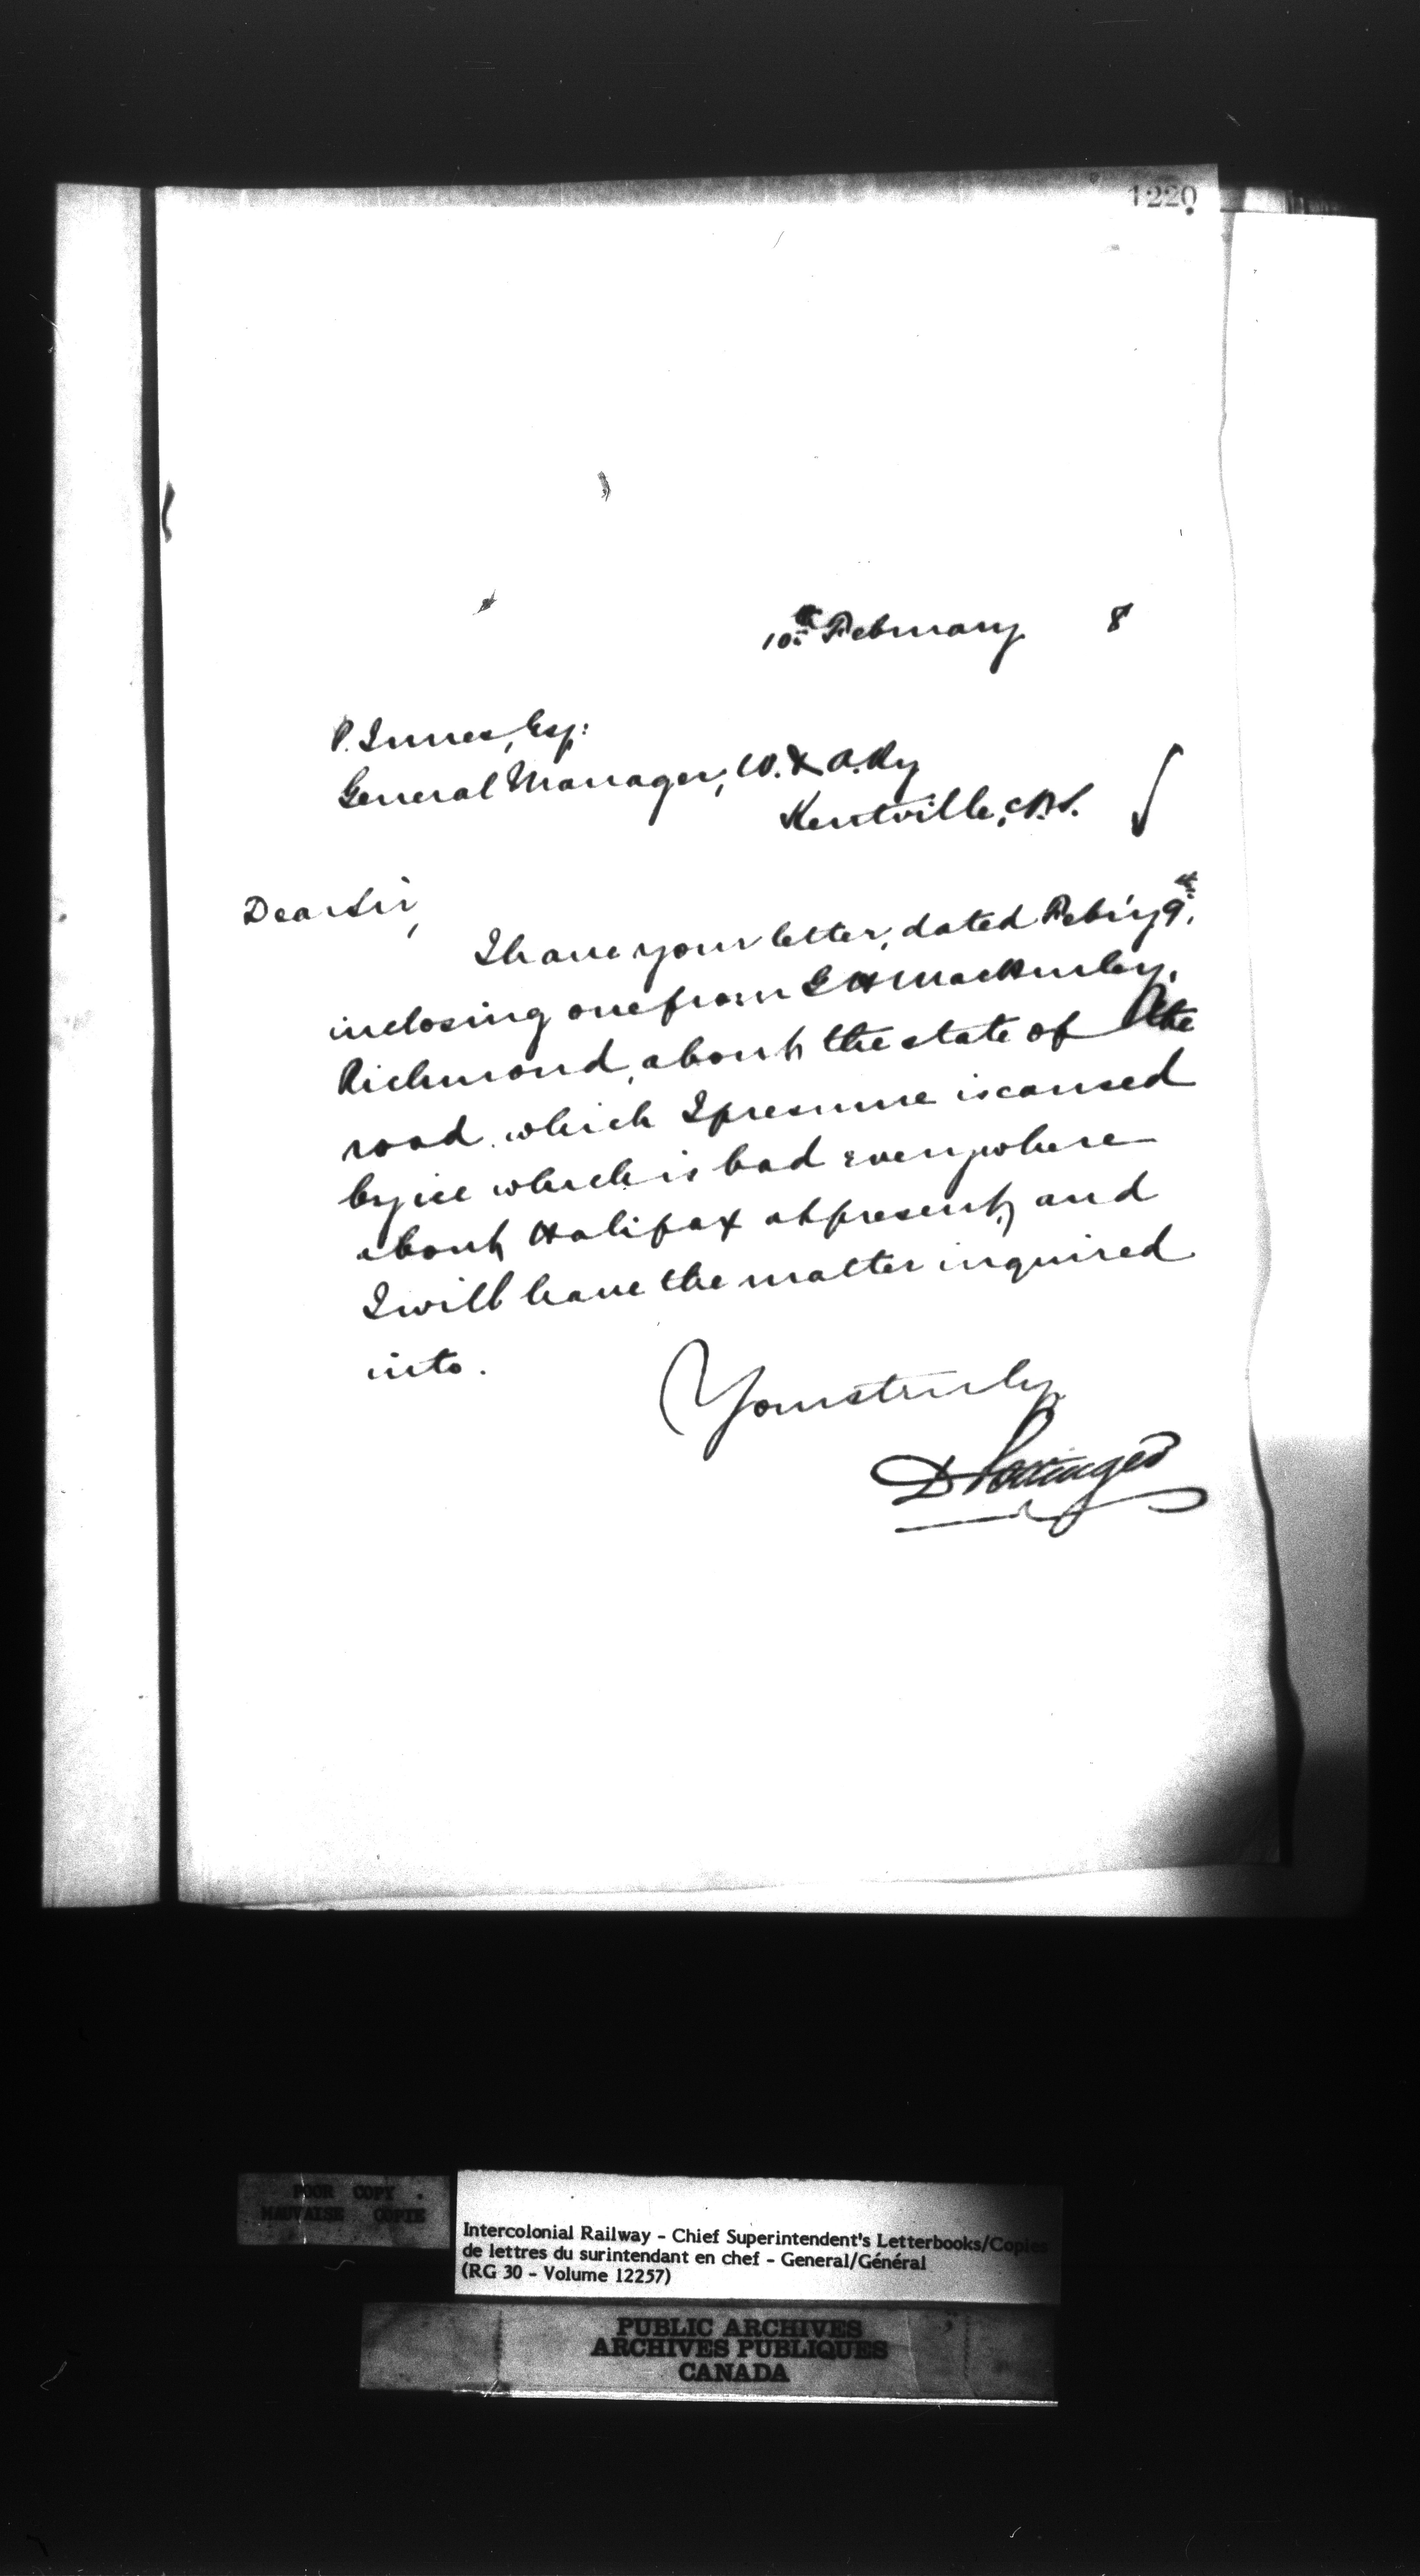 1220
10th February 8
P. Innes, Esq:
General Manager, W. & A. Ry
Kentville, N.S.
Dear Sir,
I have your letter, dated Feb'y 9th,
inclosing one from G H
Richmond, about the state of the
road, which I presume is caused
by ice which is bad everywhere
about Halifax at present, and
I will have the matter inquired
into.
Yours truly
D Pottinger
POOR COPY
MAUVAISE COPIE
Intercolonial Railway - Chief Superintendent's Letterbooks/Copies
de lettres du surintendant en chef - General/Général
(RG 30 - Volume 12257)
PUBLIC ARCHIVES
ARCHIVES PUBLIQUES
CANADA